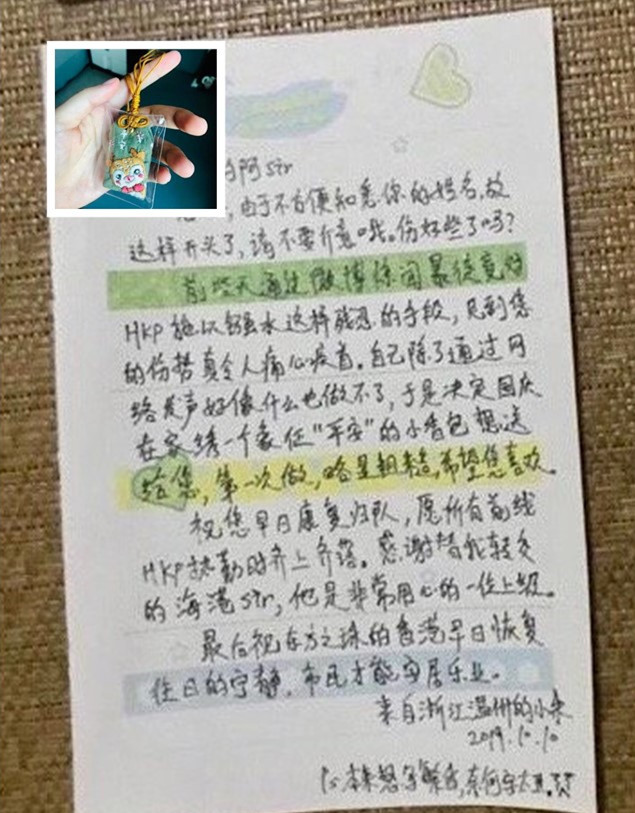 的阿sir
由于不方便知悉你的姓名,故
这样开头了,请不要介意哦。伤好些了吗?
前些天通过微博新闻 暴徒竟对
HKP施以强水这样残忍的手段,见到您
的伤势真令人痛心疾首。自己除了通过网
络发声好像什么也做不了,于是决定国庆
在家绣一个象征“平安”的小香包想送
给您,第一次做,略显粗糙,希望您喜欢。
祝您早日康复归队,愿所有前线
HKP执勤时齐上齐落。感谢替我转交
的海港sir,他是非常用心的一位上级。
最后祝东方之珠的香港早日恢复
往日的宁静,市民才能安居乐业。
来自浙江温州的小朱
2019.10.10
Ps 本来想写繁字,奈何字太丑。